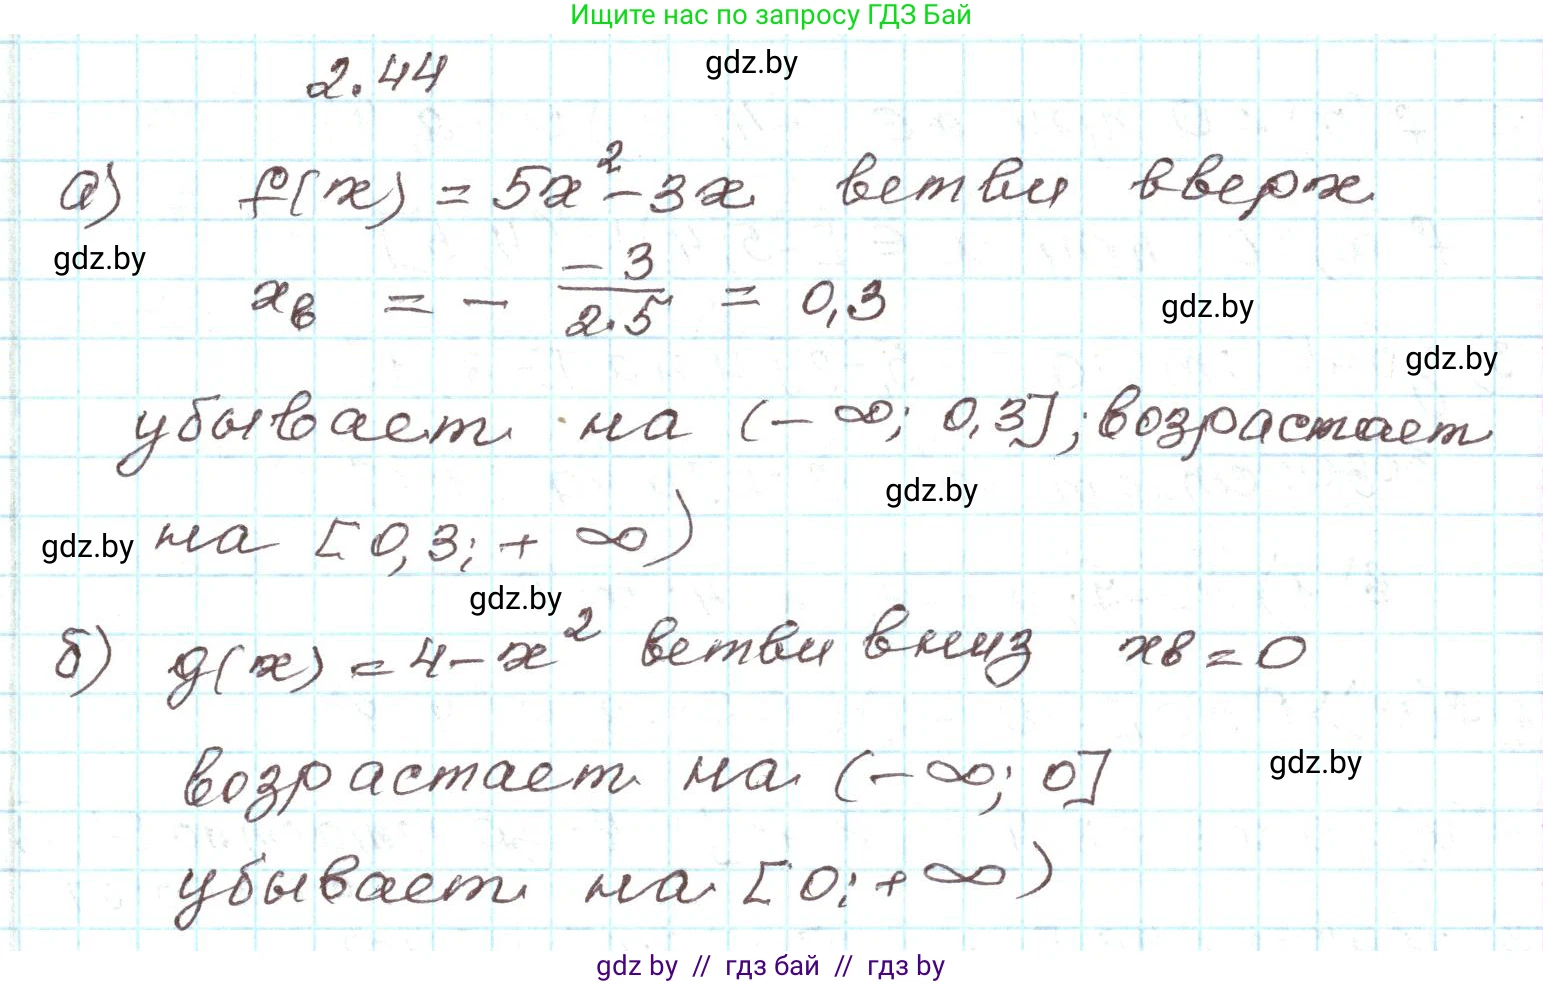 Ищите нас по запросу ГДЗ Бай
2.44
gdz.by
а) f(x) = 5x² - 3x ветви вверх
gdz.by
x_в = - \frac{-3}{2·5} = 0,3
gdz.by
gdz.by
убывает на (-∞; 0,3]; возрастает
gdz.by
на [0,3; +∞)
gdz.by
gdz.by
б) g(x) = 4 - x² ветви вниз xв = 0
возрастает на (-∞; 0]
gdz.by
убывает на [0; +∞)
gdz by // гдз бай // гдз by